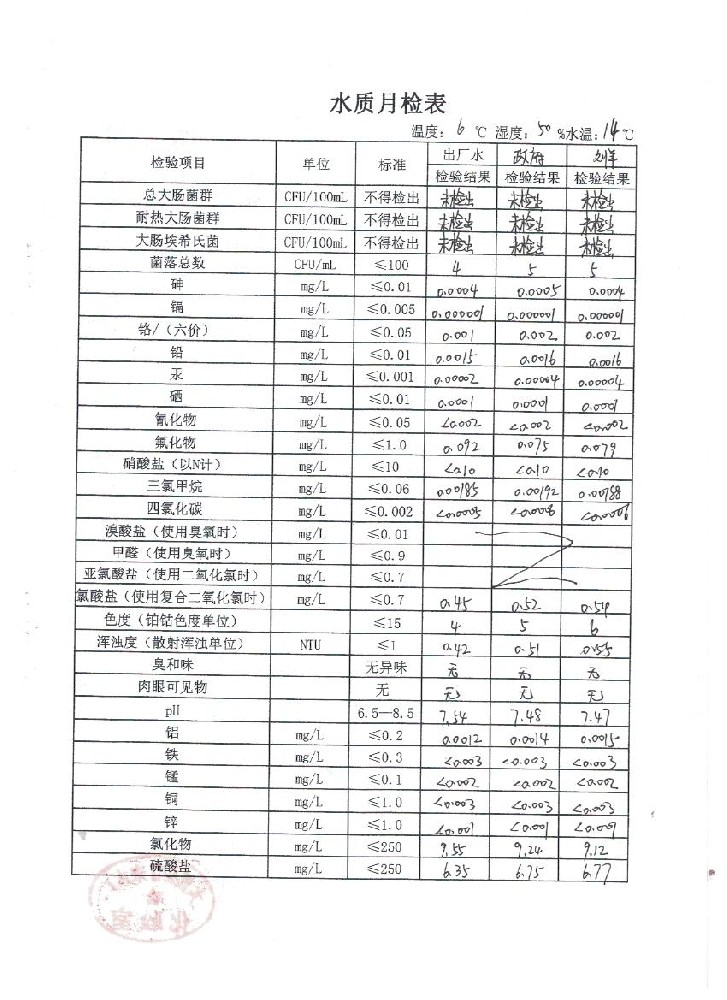 水质月检表
温度：6 ℃ 湿度：50 %水温：14℃
检验项目 单位 标准 出厂水 政府
检验结果 检验结果 检验结果
总大肠菌群 CFU/100mL 不得检出 未检出 未检出 未检出
耐热大肠菌群 CFU/100mL 不得检出 未检出 未检出 未检出
大肠埃希氏菌 CFU/100mL 不得检出 未检出 未检出 未检出
菌落总数 CFU/mL ≤100 4 5 5
砷 mg/L ≤0.01 0.0004 0.0005 0.0004
镉 mg/L ≤0.005 0.00001 0.00001 0.00001
铬/（六价） mg/L ≤0.05 0.001 0.002 0.002
铅 mg/L ≤0.01 0.0015 0.0016 0.0016
汞 mg/L ≤0.001 0.00002 0.00004 0.00004
硒 mg/L ≤0.01 0.0001 0.0001 0.0001
氰化物 mg/L ≤0.05 <0.002 <0.002 <0.002
氟化物 mg/L ≤1.0 0.092 0.075 0.079
硝酸盐（以N计） mg/L ≤10 <0.10 <0.10 <0.10
三氯甲烷 mg/L ≤0.06 0.00185 0.00192 0.00188
四氯化碳 mg/L ≤0.002 <0.0005
溴酸盐（使用臭氧时） mg/L ≤0.01
甲醛（使用臭氧时） mg/L ≤0.9
亚氯酸盐（使用二氧化氯时） mg/L ≤0.7
氯酸盐（使用复合二氧化氯时） mg/L ≤0.7 0.45 0.52 0.54
色度（铂钴色度单位） ≤15 4 5 6
浑浊度（散射浑浊单位） NTU ≤1 0.42 0.51 0.55
臭和味 无异味 无 无 无
肉眼可见物 无 无 无 无
pH 6.5—8.5 7.54 7.48 7.47
铝 mg/L ≤0.2 0.0012 0.0014 0.0015
铁 mg/L ≤0.3 <0.003 <0.003 <0.003
锰 mg/L ≤0.1 <0.002 <0.002 <0.002
铜 mg/L ≤1.0 <0.003 <0.003 <0.003
锌 mg/L ≤1.0 <0.001 <0.001 <0.001
氯化物 mg/L ≤250 9.55 9.24 9.12
硫酸盐 mg/L ≤250 6.35 6.75 6.77